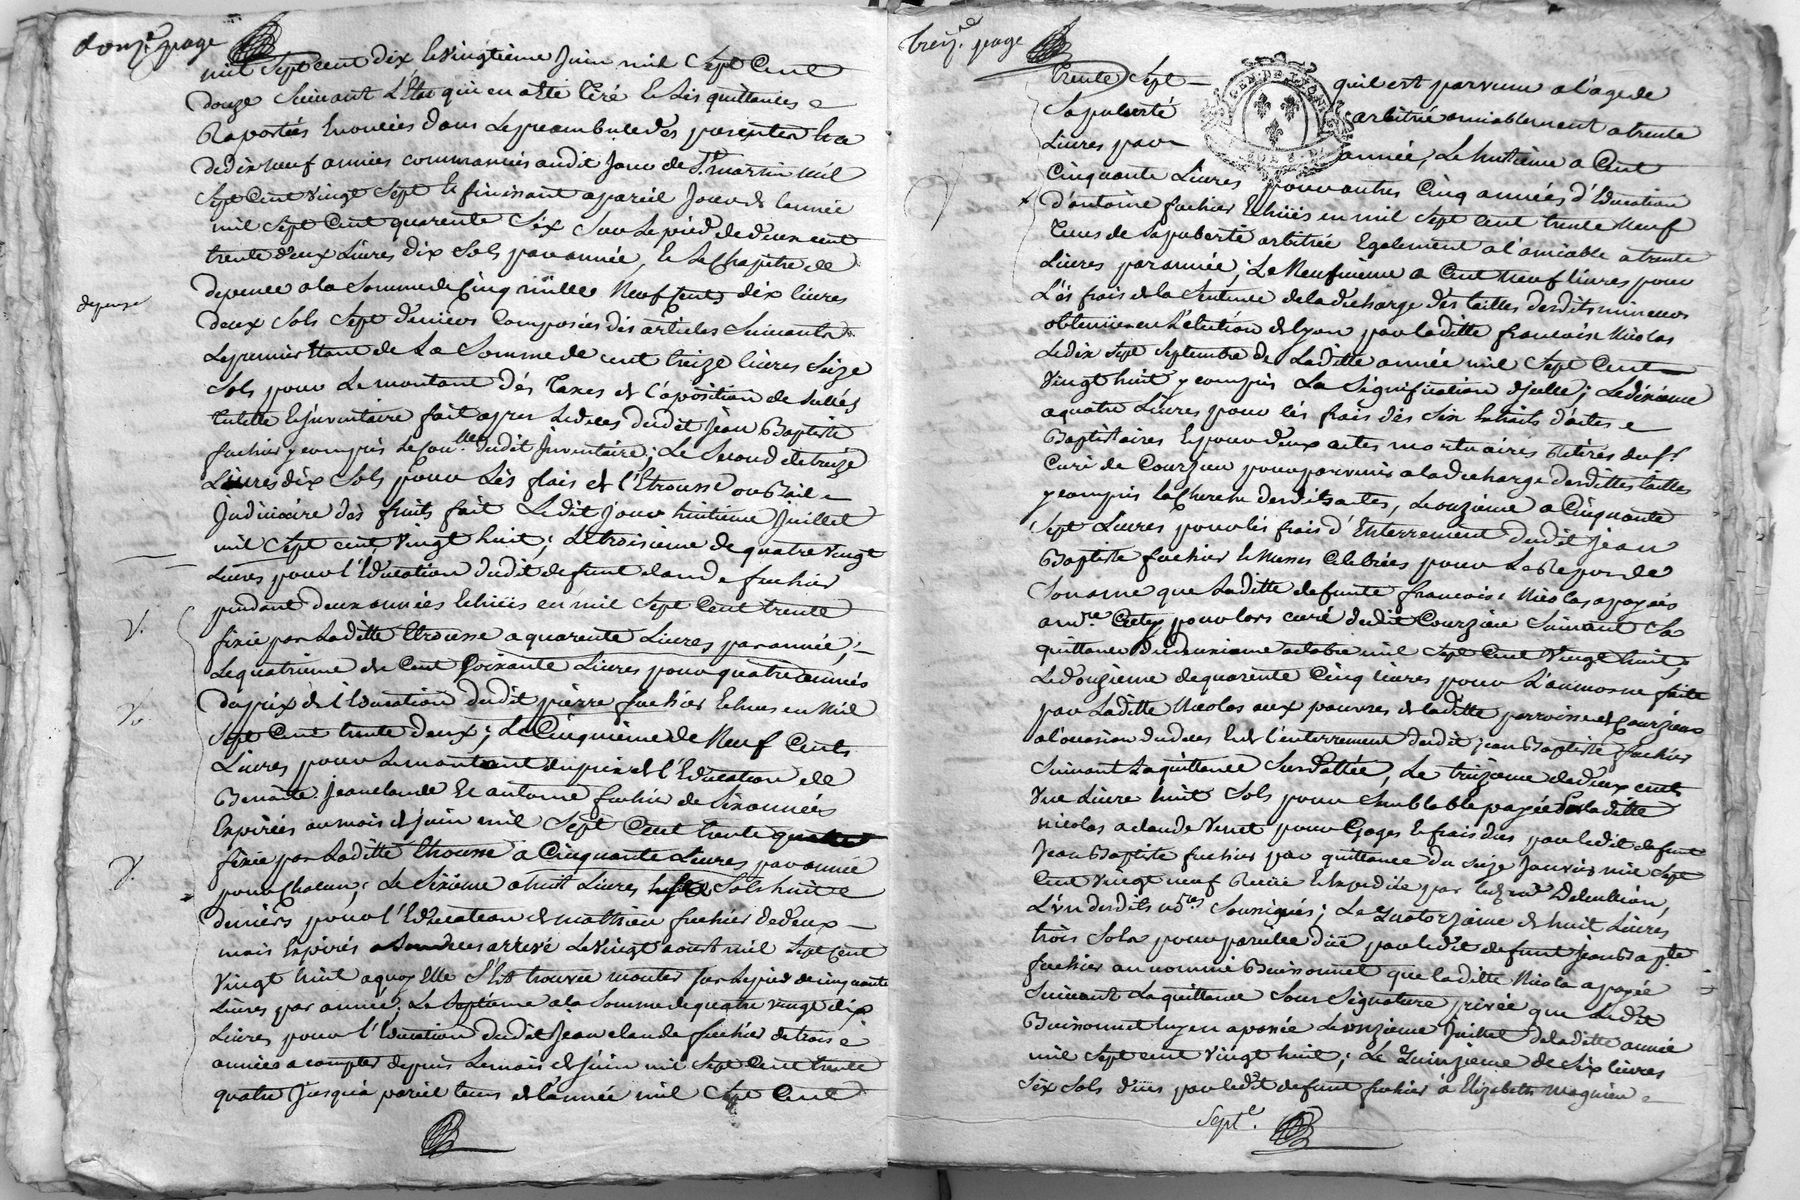 douz.e page
mil sept cent dix le vingtieme Juin mil Sept Cent
douze Suivant L'Etat qui en a été tiré et les quittances
Raportées Enoncées dans Le preambule des presentes
de dix neuf années commancées audit Jour de St martin mil
Sept Cent vingt Sept Et finissant a pareil Jour de lannée
mil Sept Cent quarente Six Sur Le pied de deux cent
trente deux Livres dix Sols par année, Et Le Chapitre de
depense
depence a la Somme de Cinq mille Neuf Cents dix livres
deux Sols Sept deniers Composées des articles Suivants
Le premier Etant de La Somme de cent treize livres Seize
Sols pour Le montant dés Taxes et l'aposition de Sellés
tutelle Et Inventaire fait apres Le deces dudit Jean Baptiste
fuchier y compris dudit Inventaire; Le Second de treize
Livres dix Sols pour Les frais de l'Etrousse ou Bail
Judiciaire dés fruits fait Le dit Jour huitieme Juillet
mil Sept cent vingt huit; Le troisieme de quatre vingt
Livres pour l'Education dudit defunt claude fuchier
pendant deux années Echües en mil Sept Cent trente
V.
fixée par Ladite Etrousse a quarente Livres par année;
Le quatrieme de Cent Soixante Livres pour quatre années
du prix de l'Education dudit pierre fuchier Echues en Mil
V.
Sept Cent trente deux; Le Cinquieme de Neuf Cents
Livres pour Le montant du prix de l'Education de
Benoite Jean claude Et antoine fuchier de Six années
Expirées au mois de Juin mil Sept Cent trente quatre
fixée par Laditte Etrousse a Cinquante Livres par année
V.
pour Chacun; Le Sixième a huit Livres Sols huit
deniers pour l'Education de mathieu fuchier de deux
mois Expirés a Son deces arrivé Le vingt aoust mil Sept Cent
vingt huit a quoy Elle S'Est trouvée monter Sur Le pied de cinquante
Livres par année; Le Septieme a la Somme de quatre vingt dix
Livres pour l'Education dudit Jean claude fuchier de trois
années a compter depuis Le mois de Juin mil Sept Cent trente
quatre Jusqu'à pareil tems de lannée mil Sept Cent
treiz.e page
trente Sept qu'il est parvenu a l'age de
GEN. DE LYON
Sa puberté arbitrée amiablement a trente
Livres par année; Le huitieme a Cent
Cinquante Livres pour autres Cinq années d'Education
d'antoine fuchier Echües en mil Sept Cent trente Neuf
tems de Sa puberté arbitrée Egalement a l'amiable a trente
Livres par année; Le Neufvieme a Cent Neuf livres pour
Lés frais de la Sentence de la decharge dés tailles desdits mineurs
obtenüe en L'election de Lyon par laditte francoise Nicolas
Le dix Sept Septembre de Laditte année mil Sept Cent
vingt huit y compris La Signification d'jcelle; Le dixième
a quatre Livres pour lés frais dés Six Extraits d'actes
Baptistaires Et pour deux actes mortuaires Retirés du Sr
Curé de Courzieu pour parvenir a la decharge desdittes tailles
y compris la Cherche desdits actes, Le onzieme a Cinquante
Sept Livres pour lés frais d'Enterrement dudit Jean
Baptiste fuchier Et Messes Celebrées pour Le Repos de
Son ame que Laditte defunte francoise Nicolas a payés
a mre pour lors curé dudit Courzieu Suivant Sa
quittance du deuxieme octobre mil Sept Cent vingt huit,
Le douzieme de quarente Cinq Livres pour L'aumosne faite
par Laditte Nicolas aux pauvres de laditte parroisse de Courzieu
a l'occasion du deces Et de l'enterrement dudit jean Baptiste fuchier
Suivant La quittance Sus dattée, Le treizieme de deux cents
Une Livre huit Sols pour Semblable payée Par laditte
Nicolas a claude Venet pour Gages Et frais dus par ledit defunt
Jean Baptiste fuchier par quittance du Seize Janvier mil Sept
Cent vingt neuf Reçüe Et Expediée par
L'un desdits Nores Soussignés; Le Quatorzième de huit Livres
trois Sols pour pareille düe par ledit defunt Jean Bapte
fuchier au nommé Buissonnet que laditte Nicolas a payée
Suivant La quittance Sous Signature privée que Ledit
Buissonnet luy en a passée Le onzieme Juillet de laditte année
mil Sept cent vingt huit; Le Quinzieme de Six livres
Six Sols düs par ledit defunt fuchier à Elizabeth Magnien
Septe.